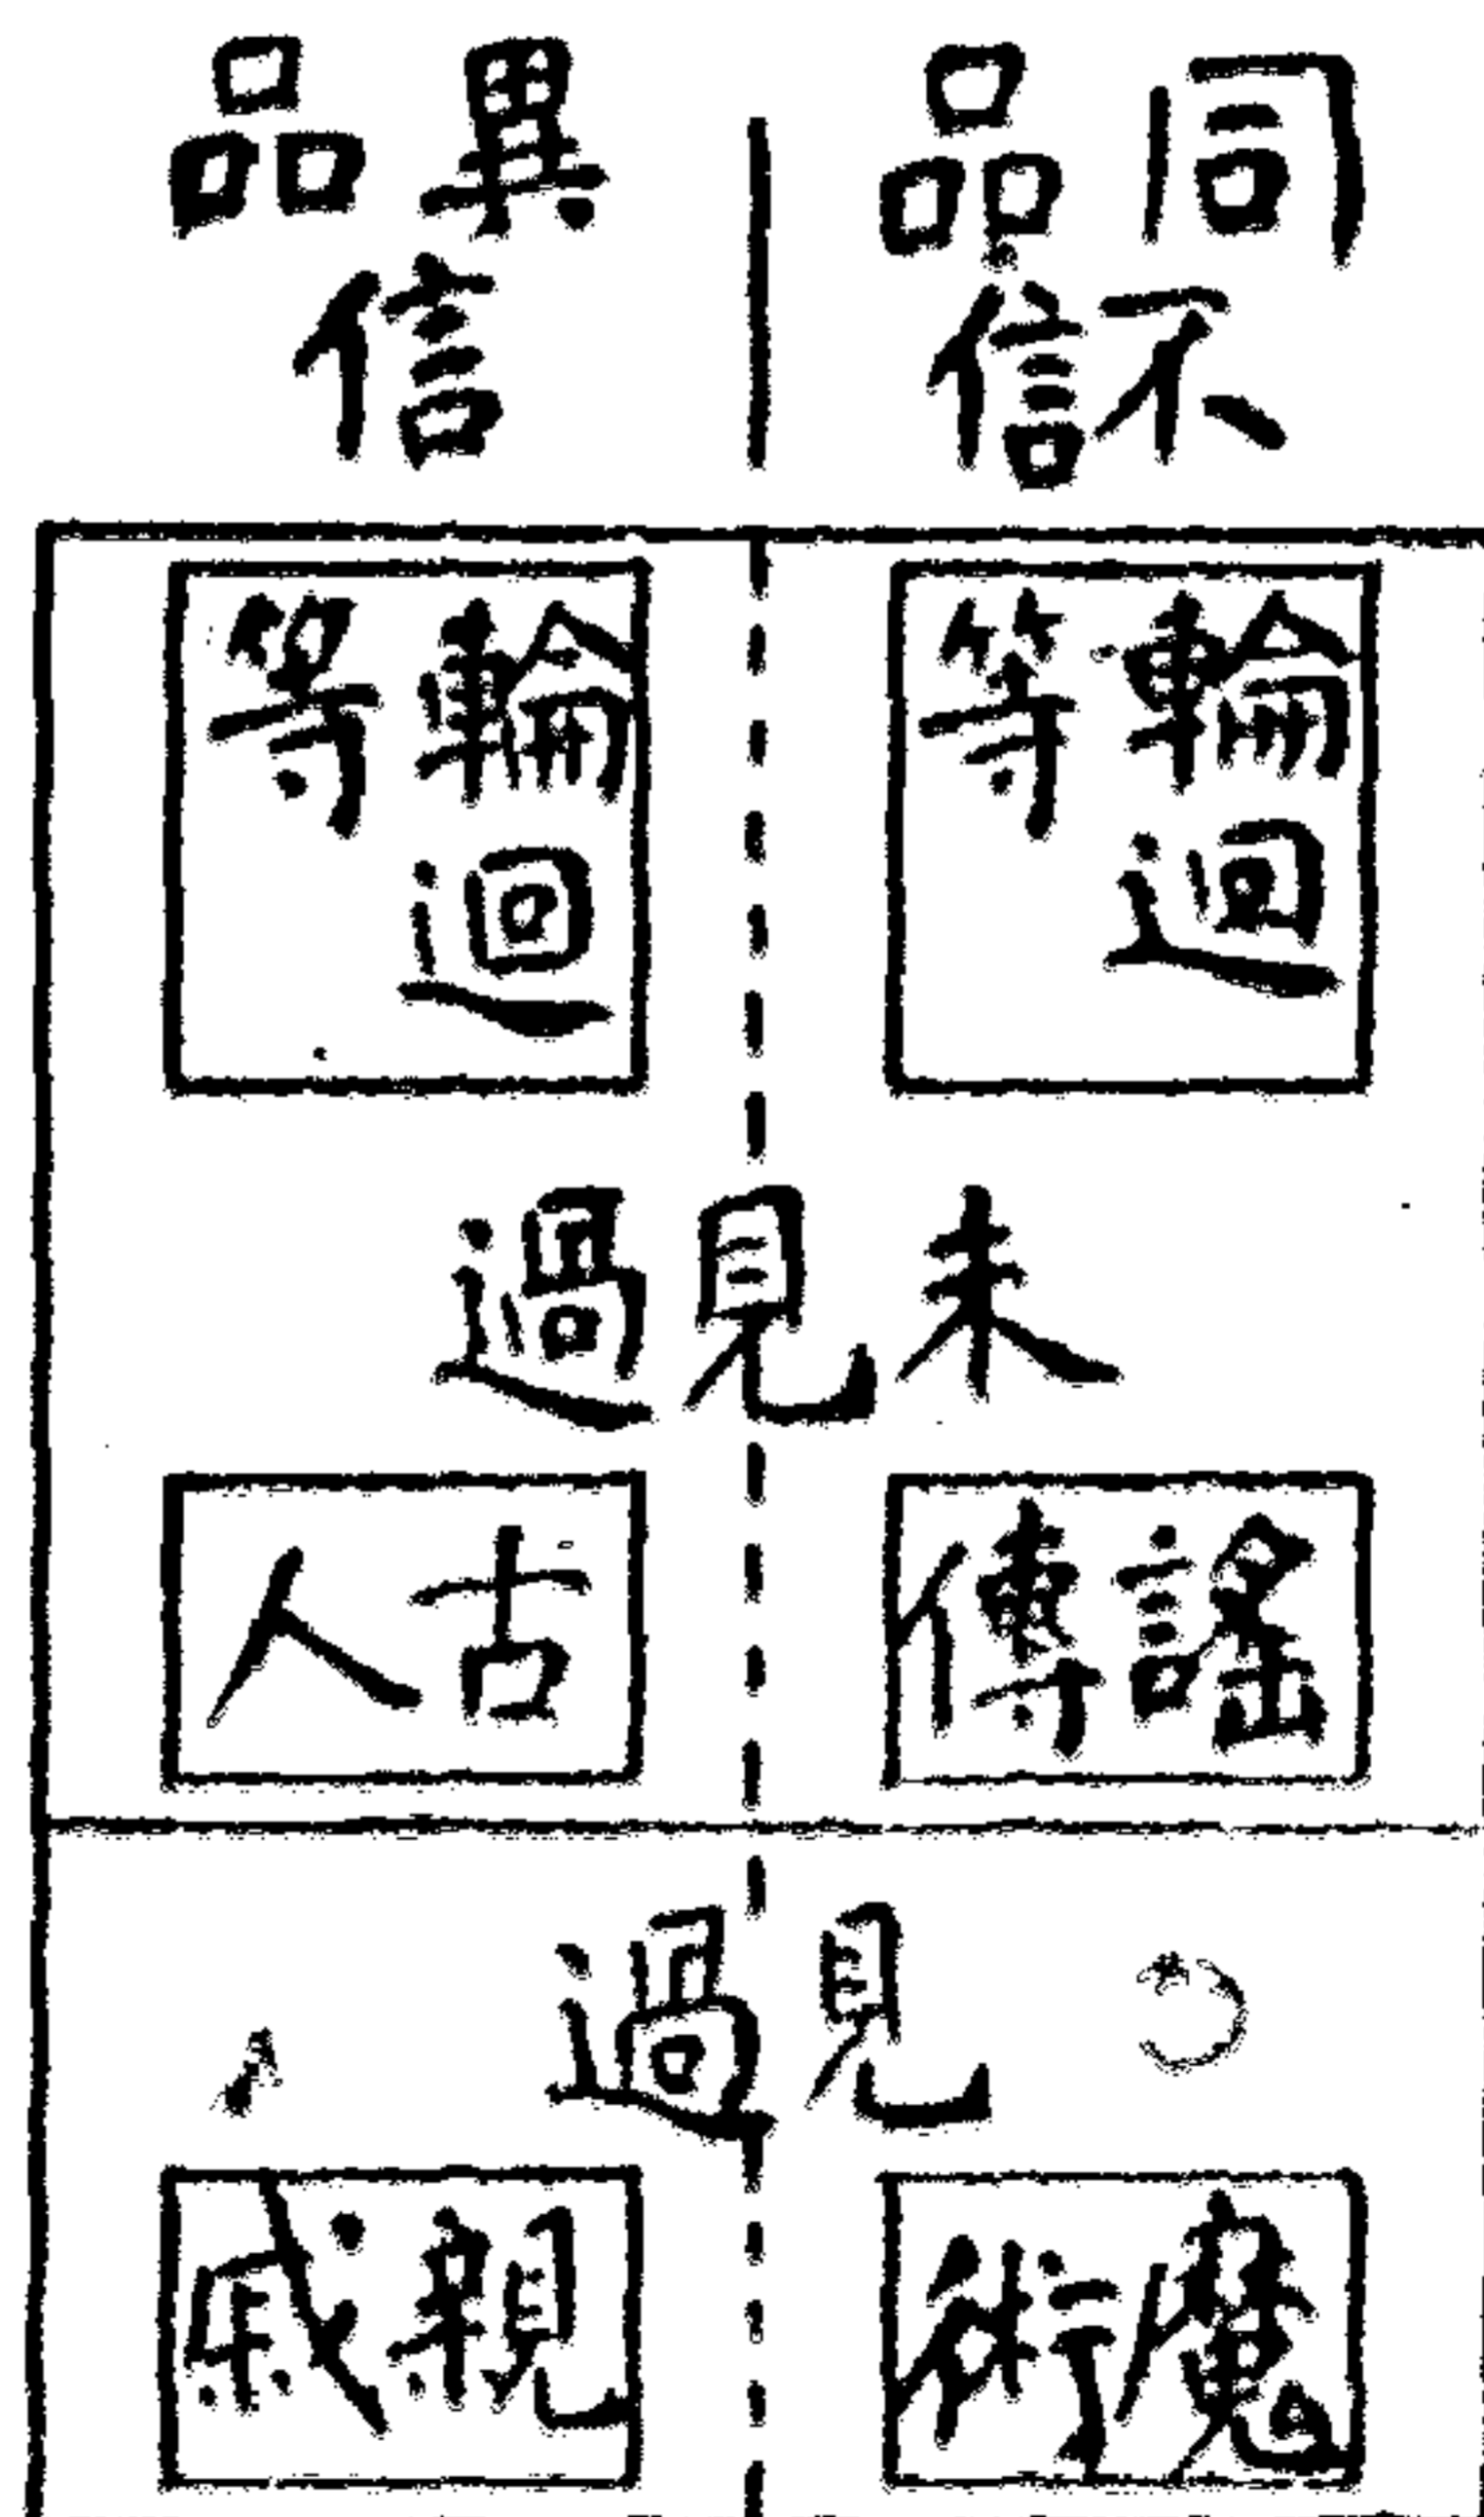 同品
不信
異品
信
輪迴
等
輪迴
等
未見過
謠傳
古人
見過
魔術
親戚